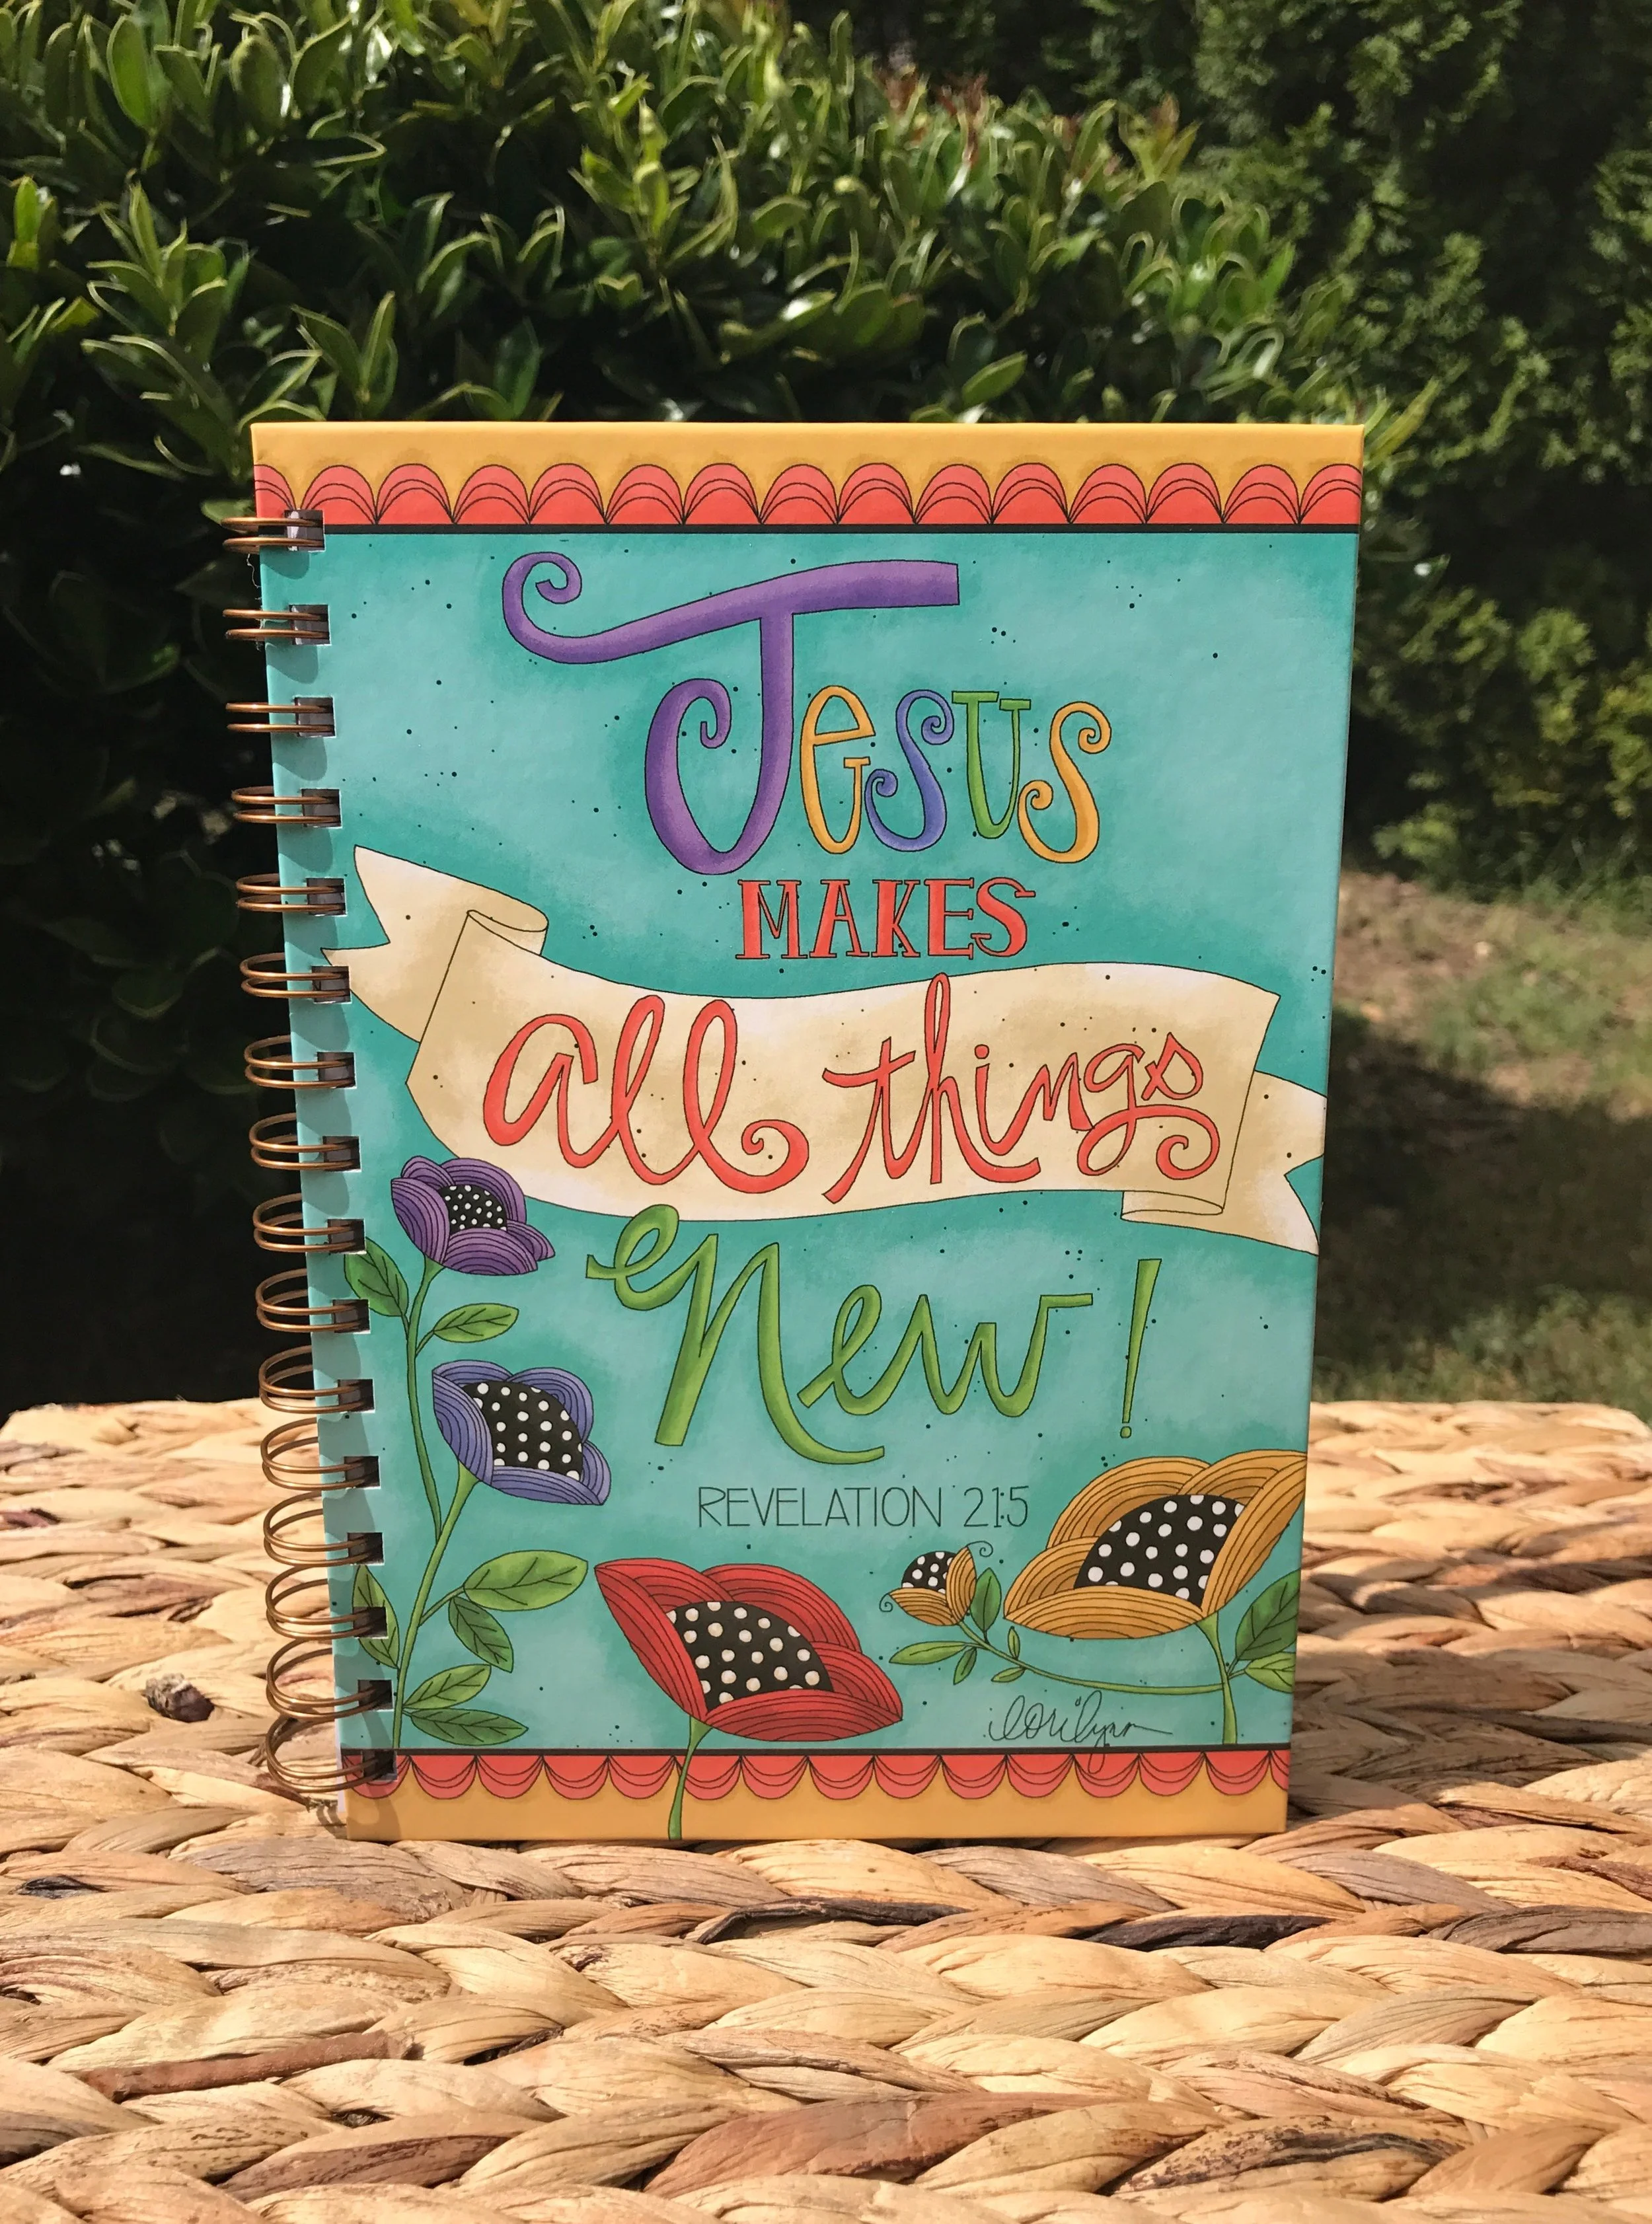 Jesus
MAKES
all things
New!
REVELATION 21:5
lorilynn